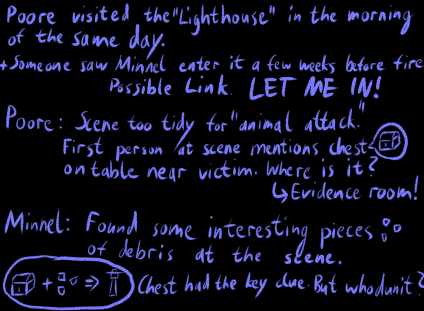 Poore visited the "Lighthouse" in the morning
of the same day.
+ Someone saw Minnel enter it a few weeks before fire
Possible Link. LET ME IN!
Poore: Scene too tidy for "animal attack."
First person at scene mentions chest
on table near victim. Where is it?
↳ Evidence room!
Minnel: Found some interesting pieces
of debris at the scene.
Chest had the key clue. But whodunit?